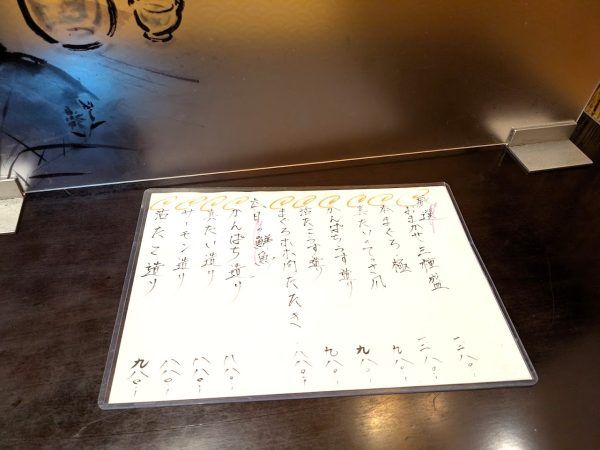 おまかせ三種盛 一二八〇-
本まぐろ 一二八〇-
真だいのてっさ風 九八〇-
かんぱちうす造り 九八〇-
活たこうす造り 九八〇-
まぐろホホ肉たたき 八八〇-
本日の鮮魚
かんぱち造り 八八〇-
真だい造り 八八〇-
サーモン造り 八八〇-
活たこ造り 九八〇-